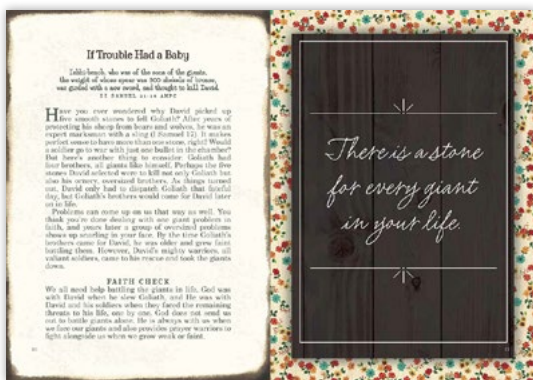 If Trouble Had a Baby
Ishbi-benob, who was of the sons of the giants,
the weight of whose spear was 300 shekels of bronze,
was girded with a new sword, and thought to kill David.
II SAMUEL 21:16 AMPC
Have you ever wondered why David picked up
five smooth stones to fell Goliath? After years of
protecting his sheep from bears and wolves, he was an
expert marksman with a sling (I Samuel 17). It makes
perfect sense to have more than one stone, right? Would
a soldier go to war with just one bullet in the chamber?
But here's another thing to consider. Goliath had
four brothers, all giants like himself. Perhaps the five
stones David selected were to kill not only Goliath but
also his ornery, oversized brothers. As things turned
out, David only had to dispatch Goliath that fateful
day, but Goliath's brothers would come for David later
on in life.
Problems can come up on us that way as well. You
think you're done dealing with one giant problem in
faith, and years later a group of oversized problems
shows up snarling in your face. By the time Goliath's
brothers came for David, he was older and grew faint
battling them. However, David's mighty warriors, all
valiant soldiers, came to his rescue and took the giants
down.
FAITH CHECK
We all need help battling the giants in life. God was
with David when he slew Goliath, and He was with
David and his soldiers when they faced the remaining
threats to his life, one by one. God does not send us
out to battle giants alone. He is always with us when
we face our giants and also provides prayer warriors to
fight alongside us when we grow weak or faint.
There is a stone
for every giant
in your life.